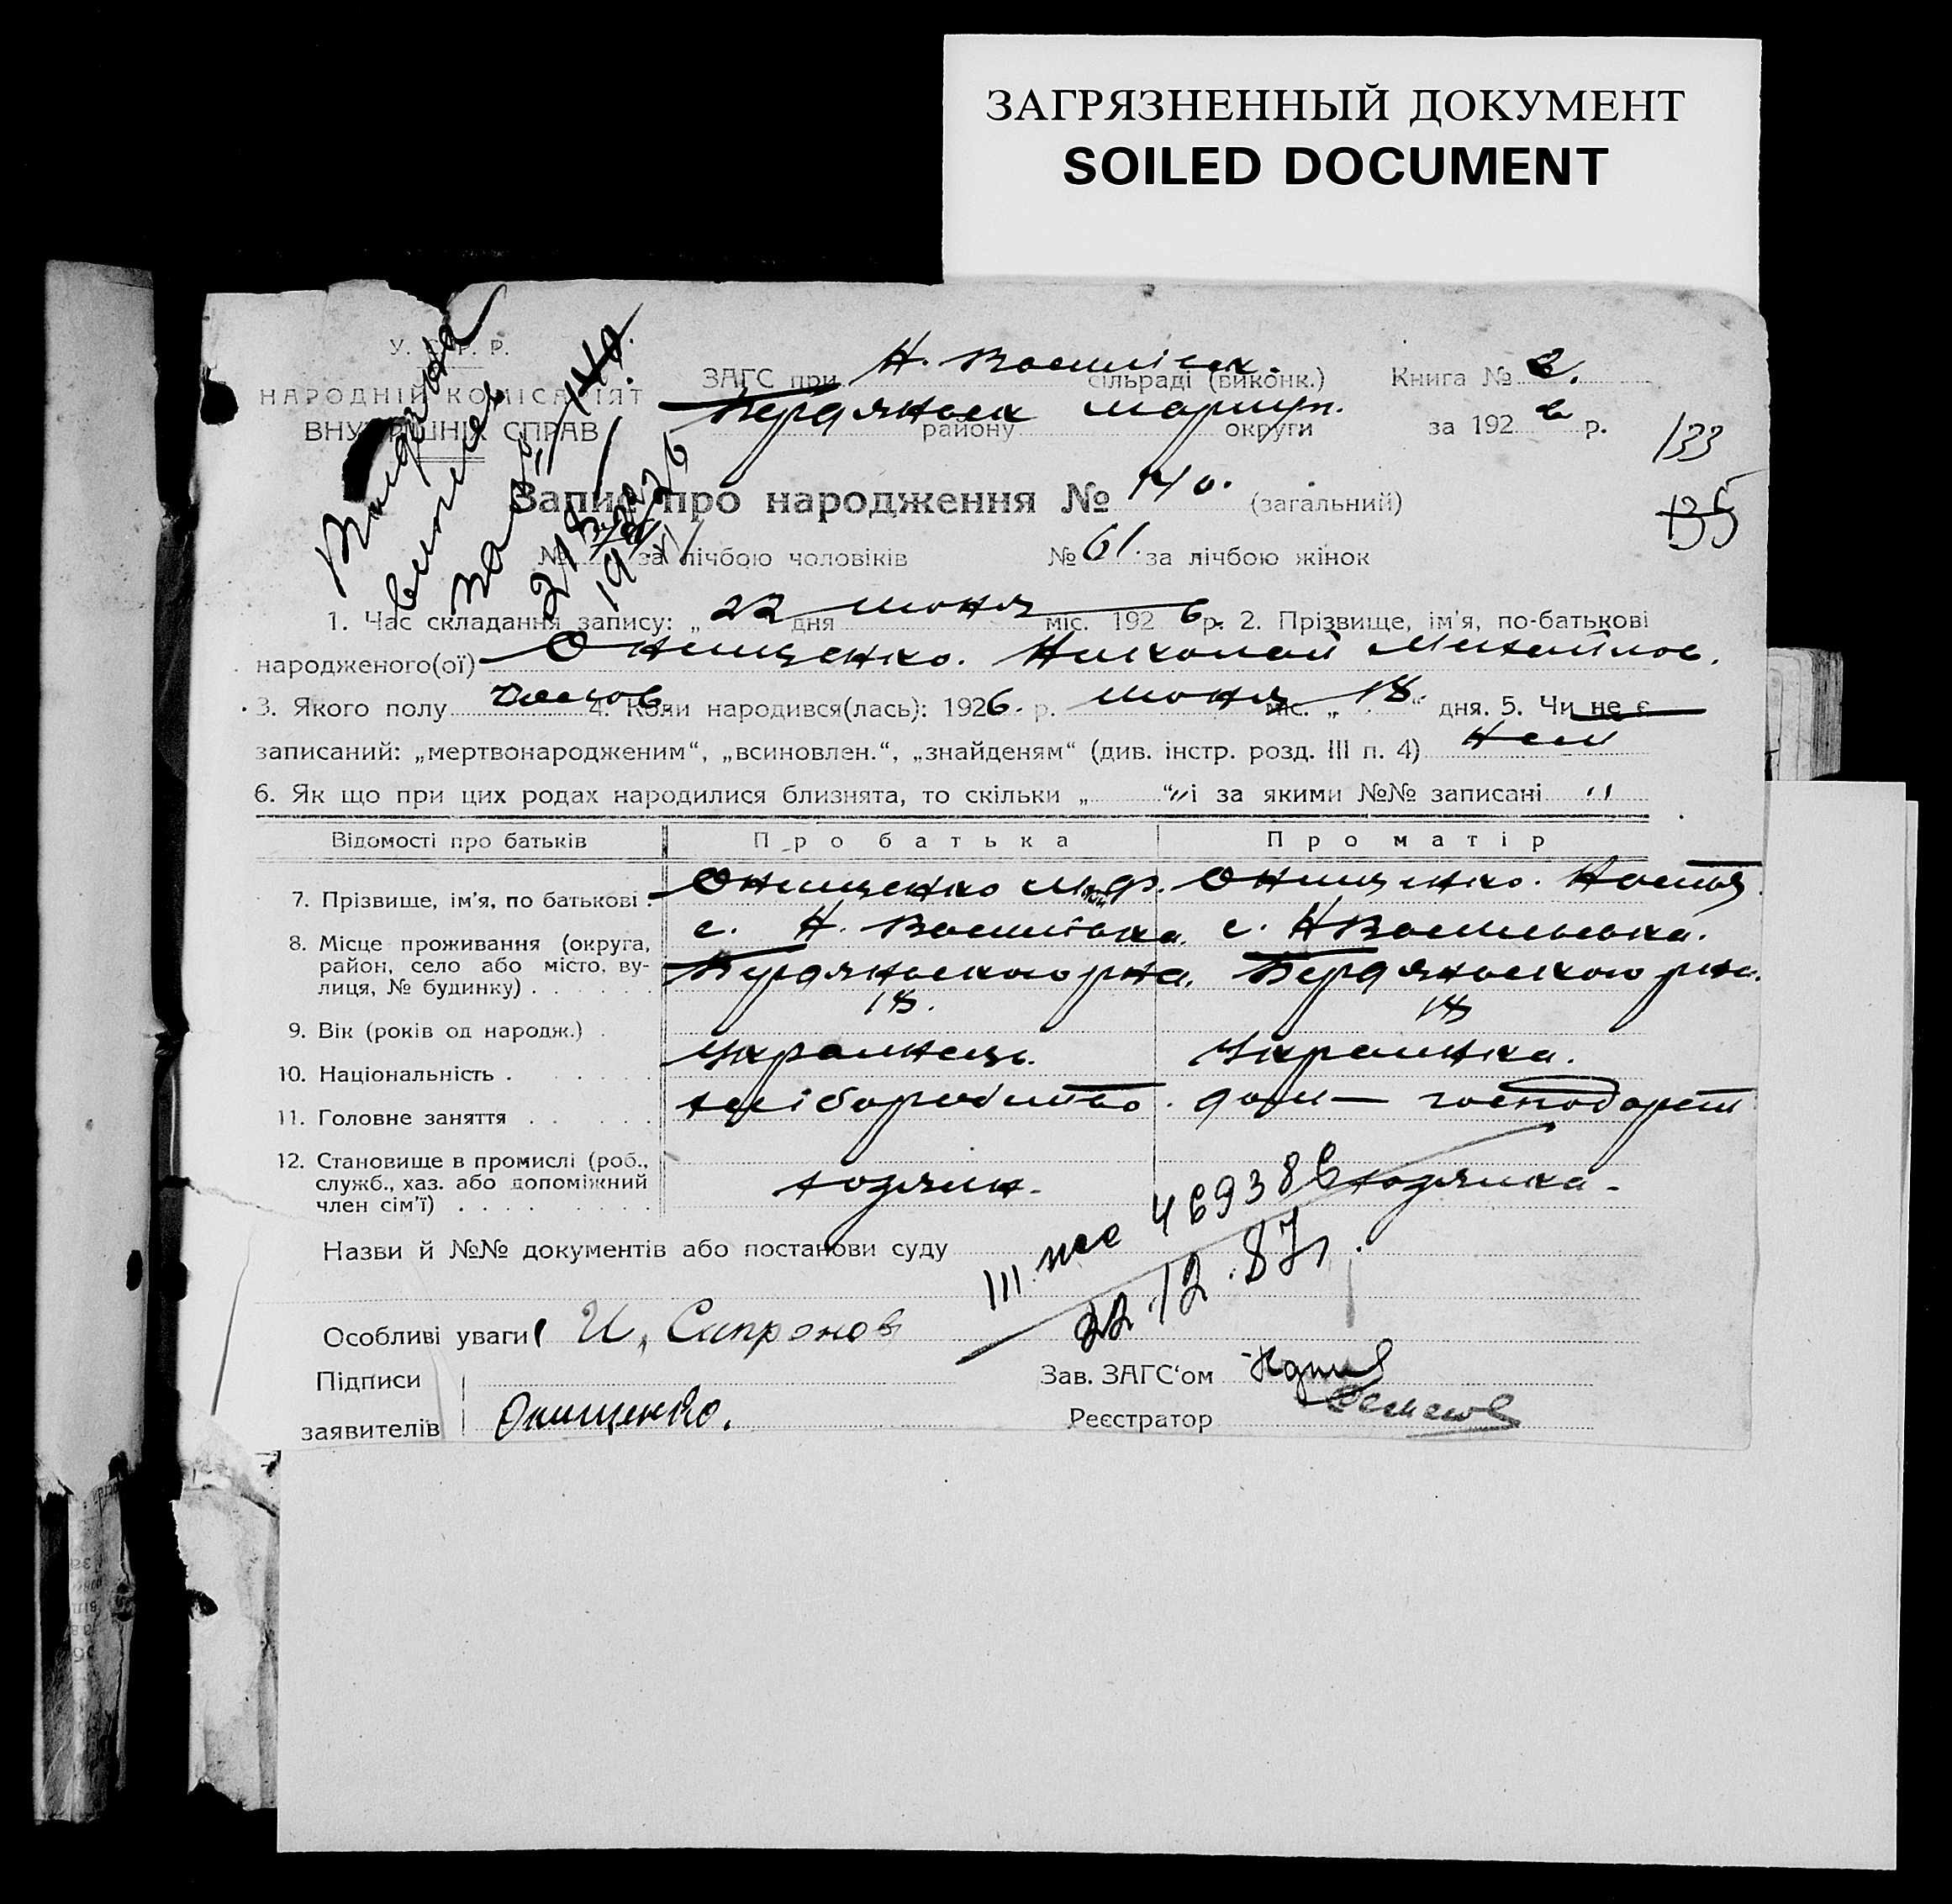 ЗАГРЯЗНЕННЫЙ ДОКУМЕНТ
SOILED DOCUMENT
У. С. Р. Р.
НАРОДНІЙ КОМІСАРІЯТ
ВНУТРІШНІХ СПРАВ
ЗАГС при сільраді (виконк.) Книга № 2.
Бердянськ району Мариуп. округи за 192 6 р.
133
135
Запис про народження № 140. (загальний)
№ за лічбою чоловіків № 61. за лічбою жінок
1. Час складання запису: „ 22 дня июня міс. 192 6 р. 2. Прізвище, ім'я, по-батькові
народженого(ої) Онищенко. Николай Михайлов.
3. Якого полу 4. Коли народився(лась): 1926. р. июня міс. „ 18. “ дня. 5. Чи не є
записаний: „мертвонародженим“, „всиновлен.“, „знайденям“ (див. інстр. розд. III п. 4)
6. Як що при цих родах народилися близнята, то скільки „ “ і за якими №№ записані
Відомості про батьків Про батька Про матір
7. Прізвище, ім'я, по батькові . Онищенко Онищенко. Настя
8. Місце проживання (округа, с. Н. Василівка. с. Н Васильевка.
район, село або місто, ву- Бердянського рна. Бердянського рна.
лиця, № будинку) . . . . .
9. Вік (років од народж.) . 18. 18
10. Національність . . . . . Украинець. Украинка.
11. Головне заняття . . . . . хліборобство. дом— господарст
12. Становище в промислі (роб.,
служб., хаз. або допоміжний хозяин. хозяика.
член сім'ї) . . . . . . . .
Назви й №№ документів або постанови суду
III 469386
22.12.87г.
Особливі уваги И, Сапронов
Підписи Зав. ЗАГС'ом
заявителів Онищенко. Реєстратор